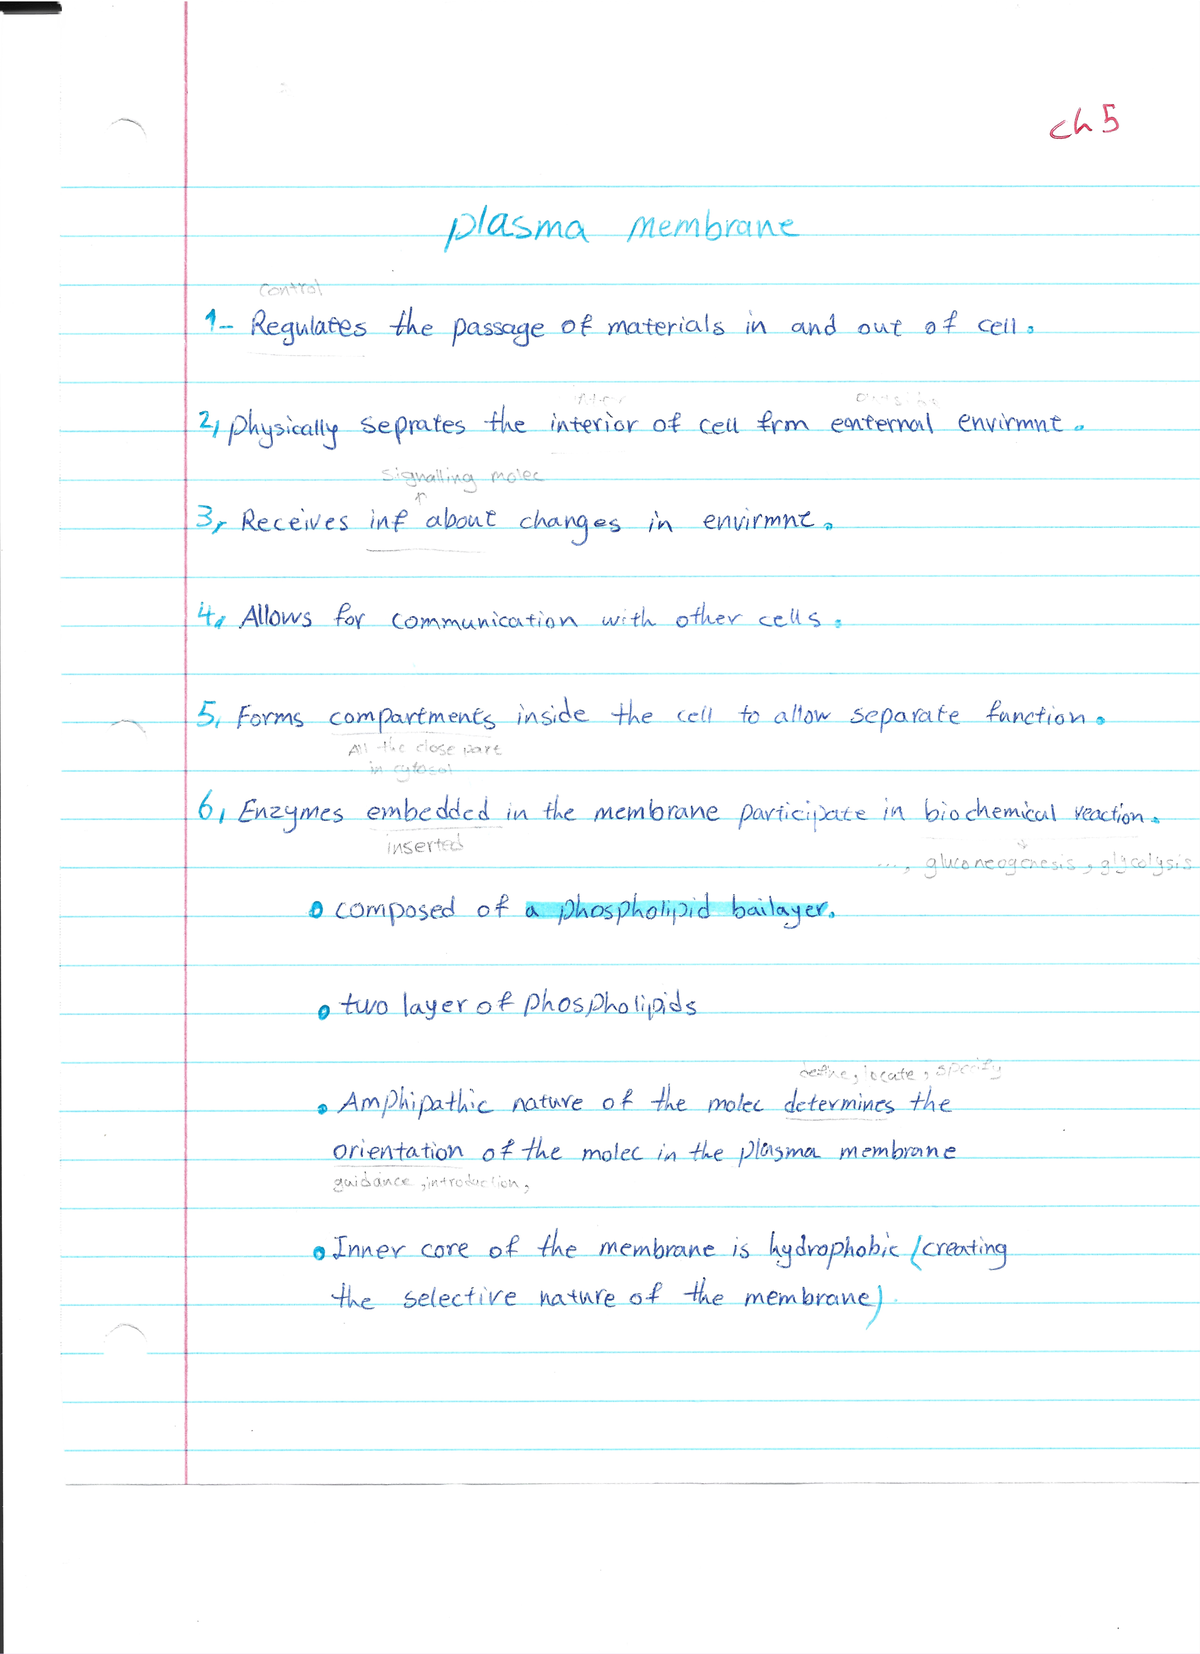 ch 5
plasma membrane
control
1- Regulates the passage of materials in and out of cell.
2, physically seprates the interior of cell frm enternal envirmnt.
signalling molec
↑
3, Receives inf about changes in envirmnt.
4. Allows for communication with other cells.
5. Forms compartments inside the cell to allow separate function.
All the close part
in cytosol
6, Enzymes embedded in the membrane participate in biochemical reaction.
inserted
..., gluconeogenesis, glycolysis
composed of a phospholipid bailayer.
two layer of phospholipids
define, locate, specify
Amphipathic nature of the molec determines the
orientation of the molec in the plasma membrane
guidance, introduction,
Inner core of the membrane is hydrophobic (creating
the selective nature of the membrane)